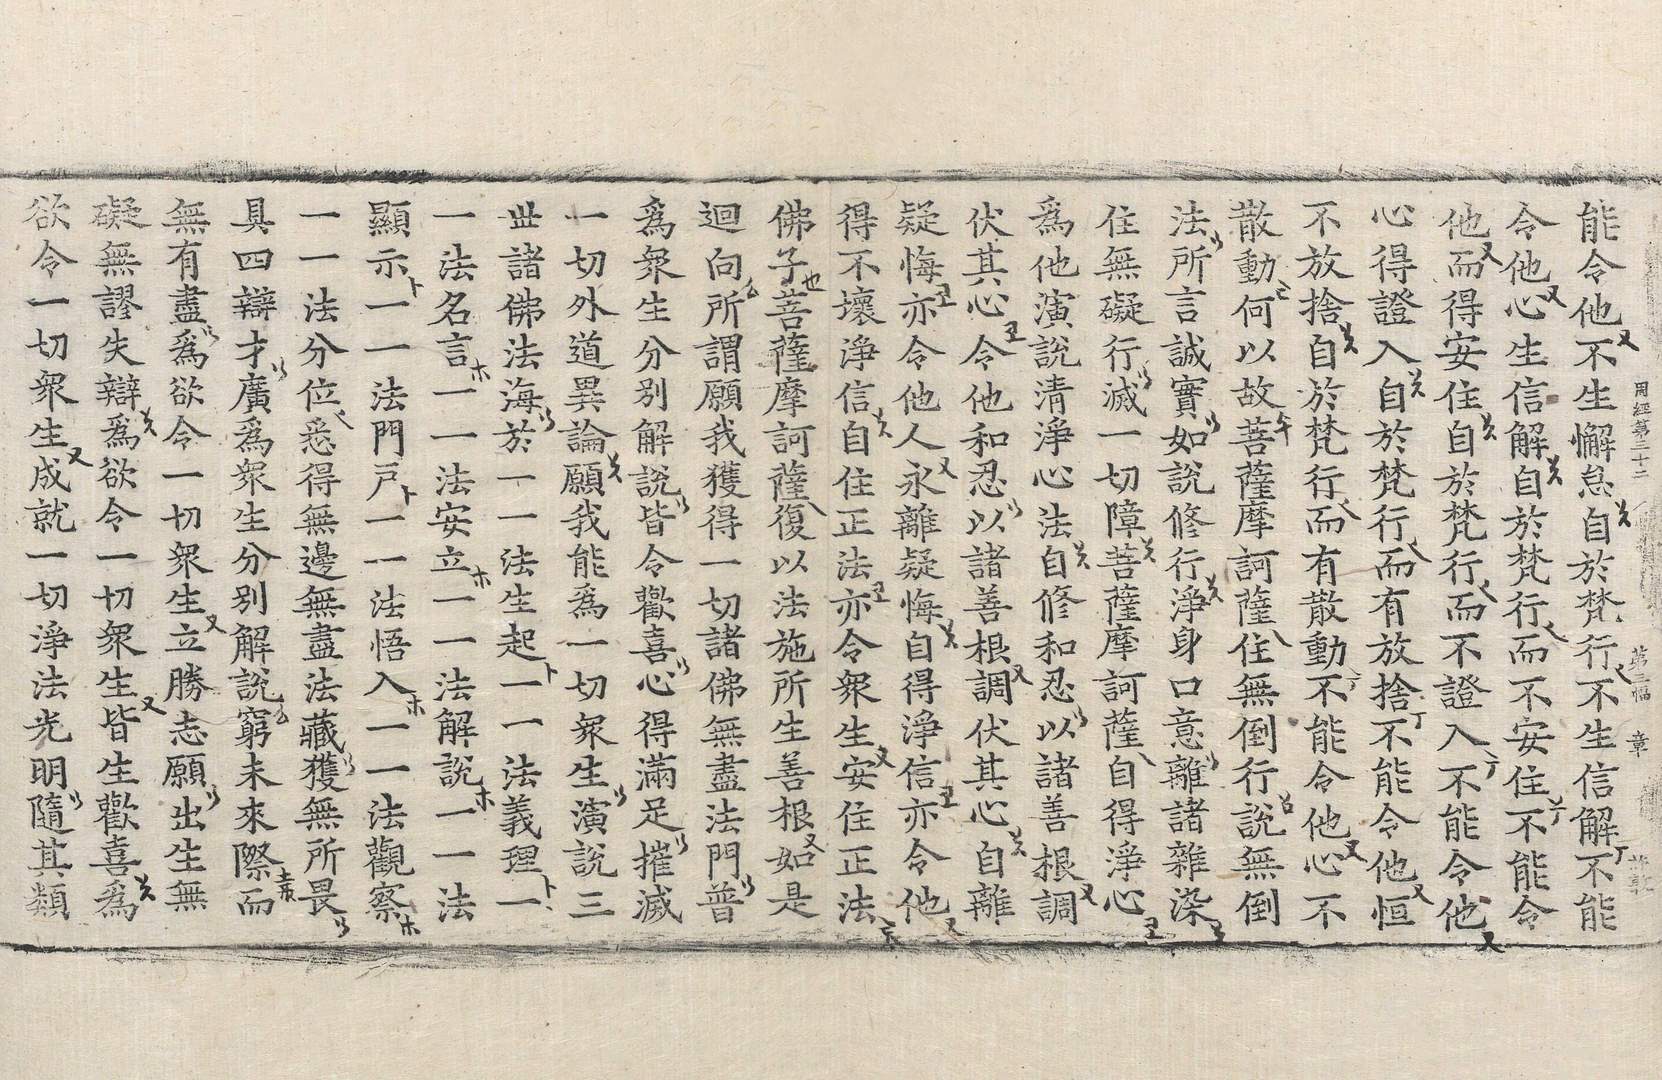 周經第三十二 第三幅 章
能令他不生懈怠自於梵行不生信解不能
令他心生信解自於梵行而不安住不能令
他而得安住自於梵行而不證入不能令他
心得證入自於梵行而有放捨不能令他恒
不放捨自於梵行而有散動不能令他心不
散動何以故菩薩摩訶薩住無倒行說無倒
法所言誠實如說修行淨身口意離諸雜染
住無礙行滅一切障菩薩摩訶薩自得淨心
爲他演說清淨心法自修和忍以諸善根調
伏其心令他和忍以諸善根調伏其心自離
疑悔亦令他人永離疑悔自得淨信亦令他
得不壞淨信自住正法亦令衆生安住正法
佛子菩薩摩訶薩復以法施所生善根如是
迴向所謂願我獲得一切諸佛無盡法門普
爲衆生分別解說皆令歡喜心得滿足摧滅
一切外道異論願我能爲一切衆生演說三
世諸佛法海於一一法生起一一法義理一
一法名言一一法安立一一法解說一一法
顯示一一法門戶一一法悟入一一法觀察
一一法分位悉得無邊無盡法藏獲無所畏
具四辯才廣爲衆生分別解說窮未來際而
無有盡爲欲令一切衆生立勝志願出生無
礙無謬失辯爲欲令一切衆生皆生歡喜爲
欲令一切衆生成就一切淨法光明隨其類